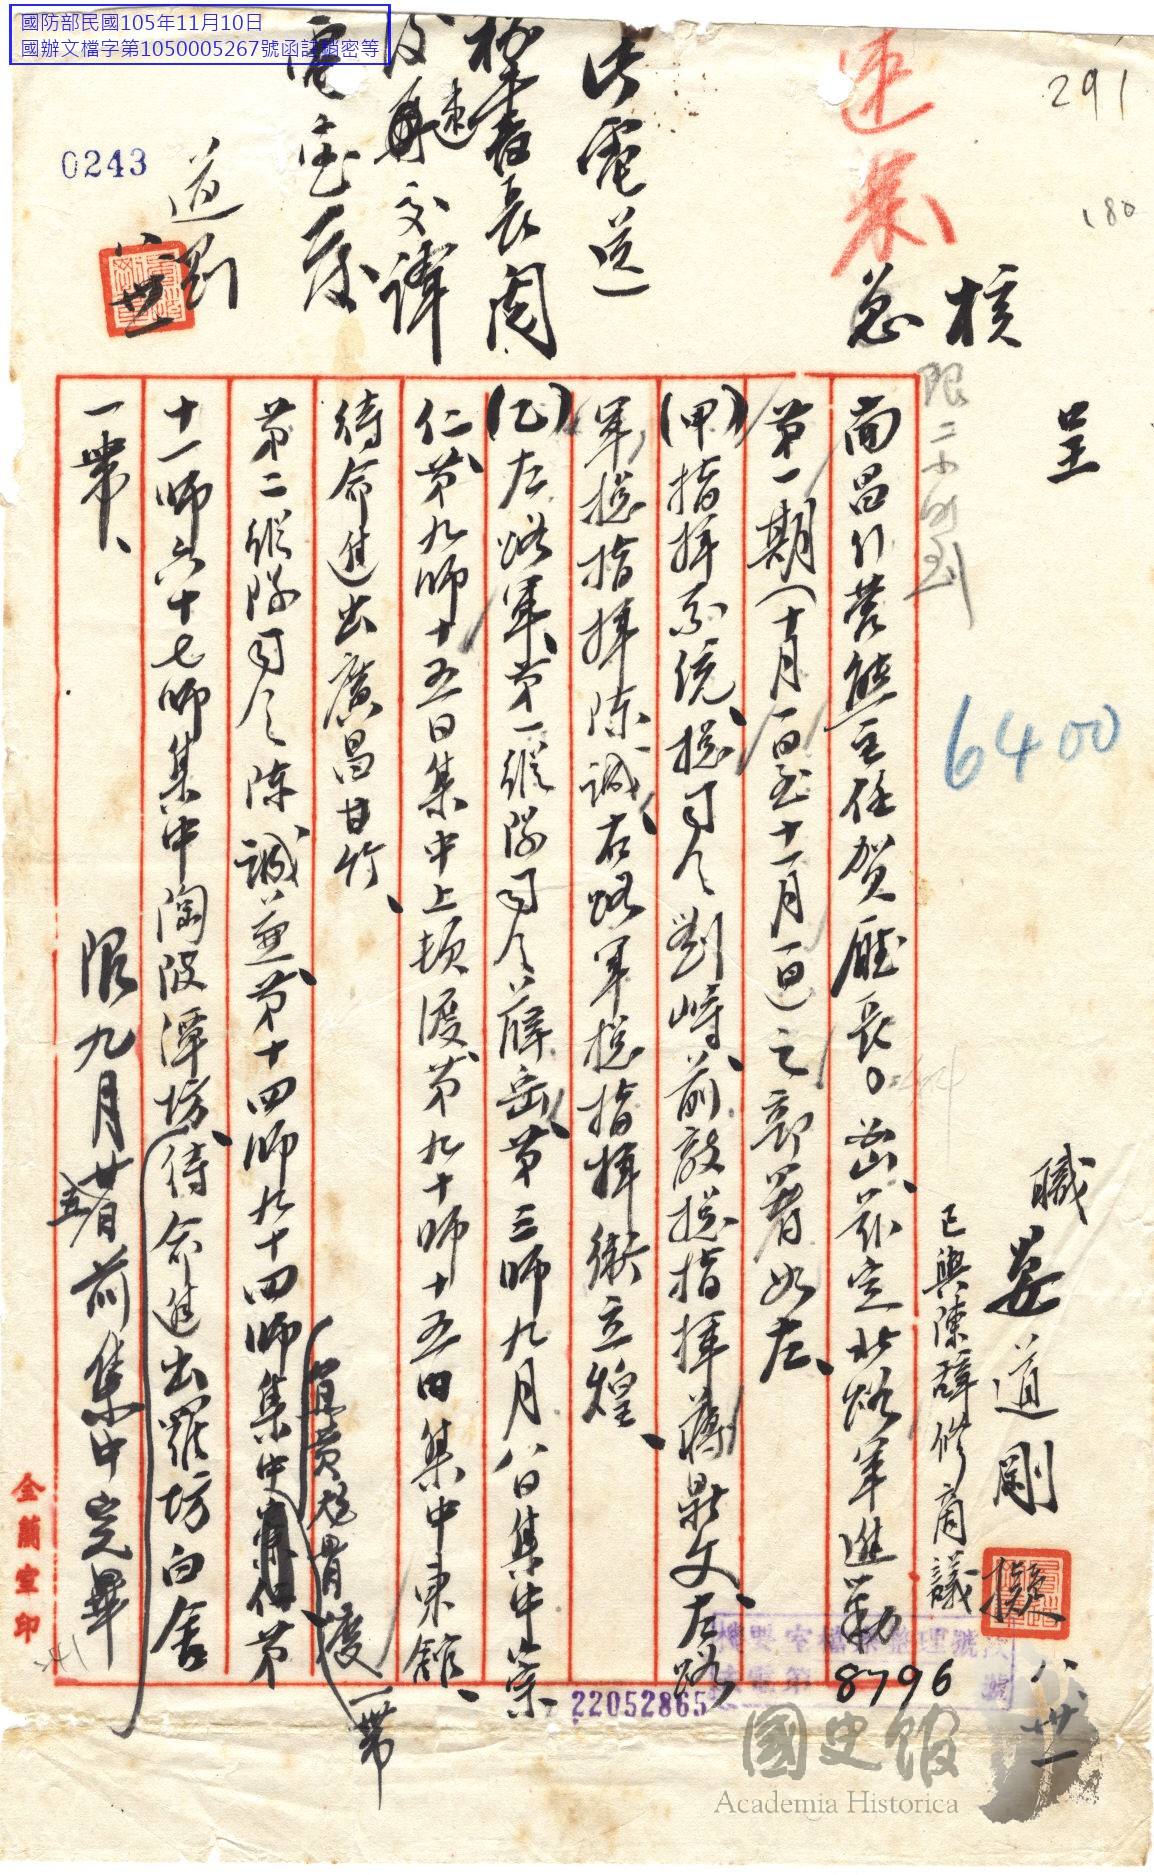 國防部民國105年11月10日
國辦文檔字第1050005267號函註銷密等
291
180
0243
速
核
急
呈
限二小時到
6400
職晏道剛擬
八卅一
已與陳、薛修商議
此電送
楊秘書長閱
及再速交譯
電室發
道剛
八卅一
南昌行營熊主任賀廳長。密、茲定北路軍進剿
第一期(十月一日至十一月一日)之部署如左、
(甲)指揮系統、總司令劉峙、前敵總指揮蔣鼎文、左路
軍總指揮陳誠、右路軍總指揮衛立煌、
(乙)左路軍、第一縱隊司令薛岳、第三師九月八日集中崇
仁、第九師十五日集中上頓渡、第九十師十五日集中東館、
待命進出廣昌甘竹、
第二縱隊司令陳誠兼、第十四師九十四師集中宜黃棠陰渡一帶、第
十一師六十七師集中陶陂潭坊、待命進出羅坊白舍
一帶、
限九月廿五日前集中完畢
8796
22052865
金蘭室印
國史館
Academia Historica